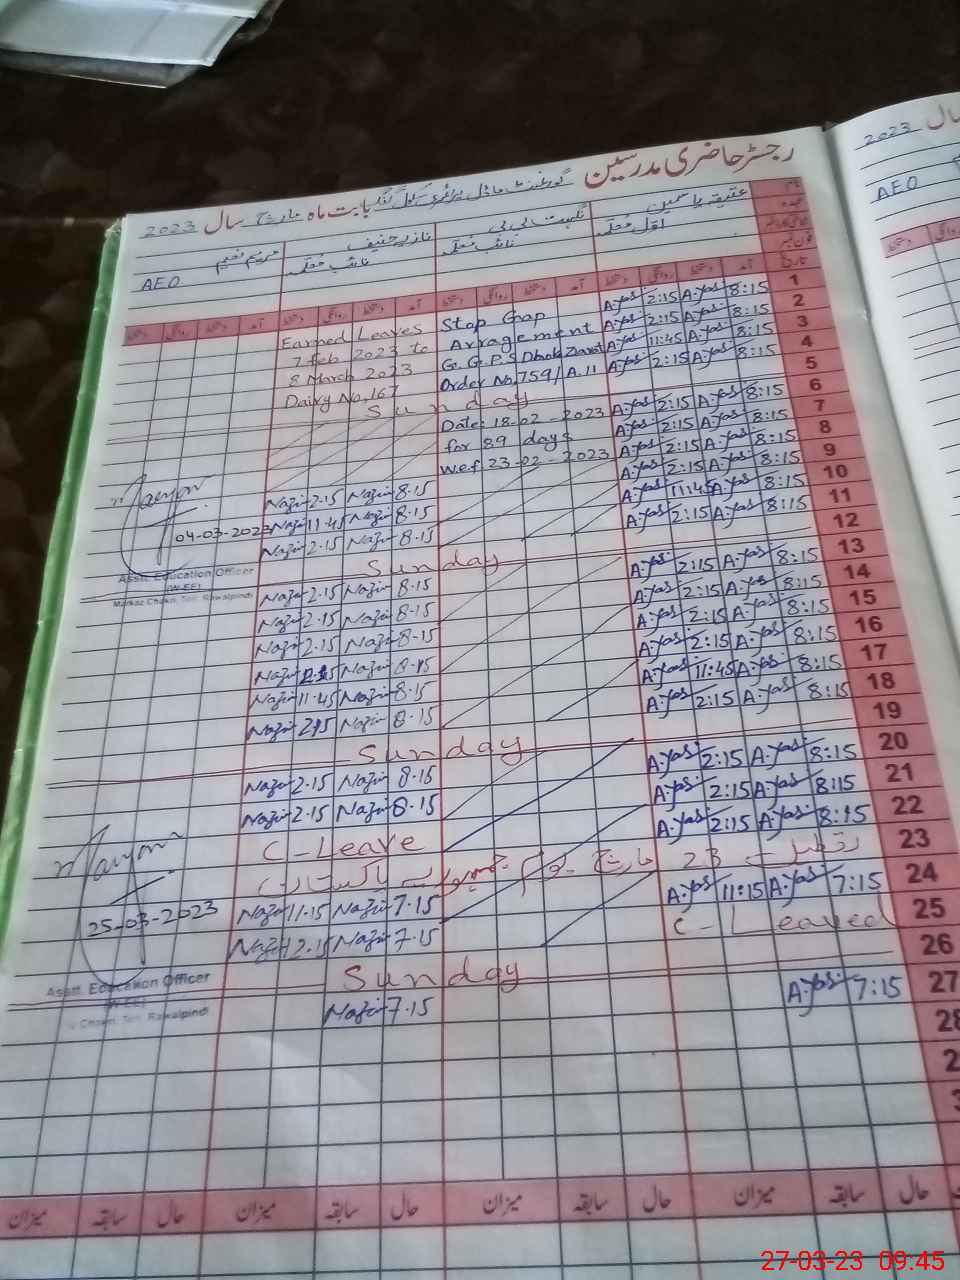 2023 سال
AEO
رجسٹر حاضری مدرسین گورنمنٹ ماڈل پرائمری سکول بابت ماہ مارچ سال 2023
نام عتیقہ یاسمین نگہت بی بی نازیہ حنیف مریم نعیم
عہدہ اول معلمہ نائب معلمہ نائب معلمہ AEO
تاریخ آمد دستخط روانگی دستخط آمد دستخط روانگی دستخط آمد دستخط روانگی دستخط آمد دستخط روانگی دستخط
Earned Leaves Stop Gap A.Yas 2:15 A.Yas 8:15 1
7 Feb 2023 to Arragement A.Yas 2:15 A.Yas 8:15 2
8 March 2023 G.G.P.S Dhok Ziarat A.Yas 11:45 A.Yas 8:15 3
Dairy No, 167 Order No, 759/A.11 A.Yas 2:15 A.Yas 8:15 4
Sunday 5
Date: 18-02-2023 A.Yas 2:15 A.Yas 8:15 6
for 89 days A.Yas 2:15 A.Yas 8:15 7
wef 23-02-2023 A.Yas 2:15 A.Yas 8:15 8
Nazir 2.15 Nazir 8.15 A.Yas 2:15 A.Yas 8:15 9
04-03-2023 Nazir 11.45 Nazir 8.15 A.Yas 11:45 A.Yas 8:15 10
Nazir 2.15 Nazir 8.15 A.Yas 2:15 A.Yas 8:15 11
Asstt. Education Officer Sunday 12
(W-EE)
Markaz Chakri, Teh. Rawalpindi
Nazir 2.15 Nazir 8.15 A.Yas 2:15 A.Yas 8:15 13
Nazir 2.15 Nazir 8.15 A.Yas 2:15 A.Yas 8:15 14
Nazir 2.15 Nazir 8.15 A.Yas 2:15 A.Yas 8:15 15
Nazir 2.15 Nazir 8.15 A.Yas 2:15 A.Yas 8:15 16
Nazir 11.45 Nazir 8.15 A.Yas 11:45 A.Yas 8:15 17
Nazir 2.15 Nazir 8.15 A.Yas 2:15 A.Yas 8:15 18
Sunday 19
Nazir 2.15 Nazir 8.15 A.Yas 2:15 A.Yas 8:15 20
Nazir 2.15 Nazir 8.15 A.Yas 2:15 A.Yas 8:15 21
C-Leave A.Yas 2:15 A.Yas 8:15 22
تعطیل 23 مارچ یوم جمہوریہ پاکستان 23
25-03-2023 Nazir 11.15 Nazir 7.15 A.Yas 11:15 A.Yas 7:15 24
Nazir 12.15 Nazir 7.15 C-Leaved 25
Asstt. Education Officer Sunday 26
(W-EE)
Chakri, Teh. Rawalpindi
Nazir 7.15 A.Yas 7:15 27
28
حال سابقہ میزان حال سابقہ میزان حال سابقہ میزان حال سابقہ میزان
27-03-23 09:45